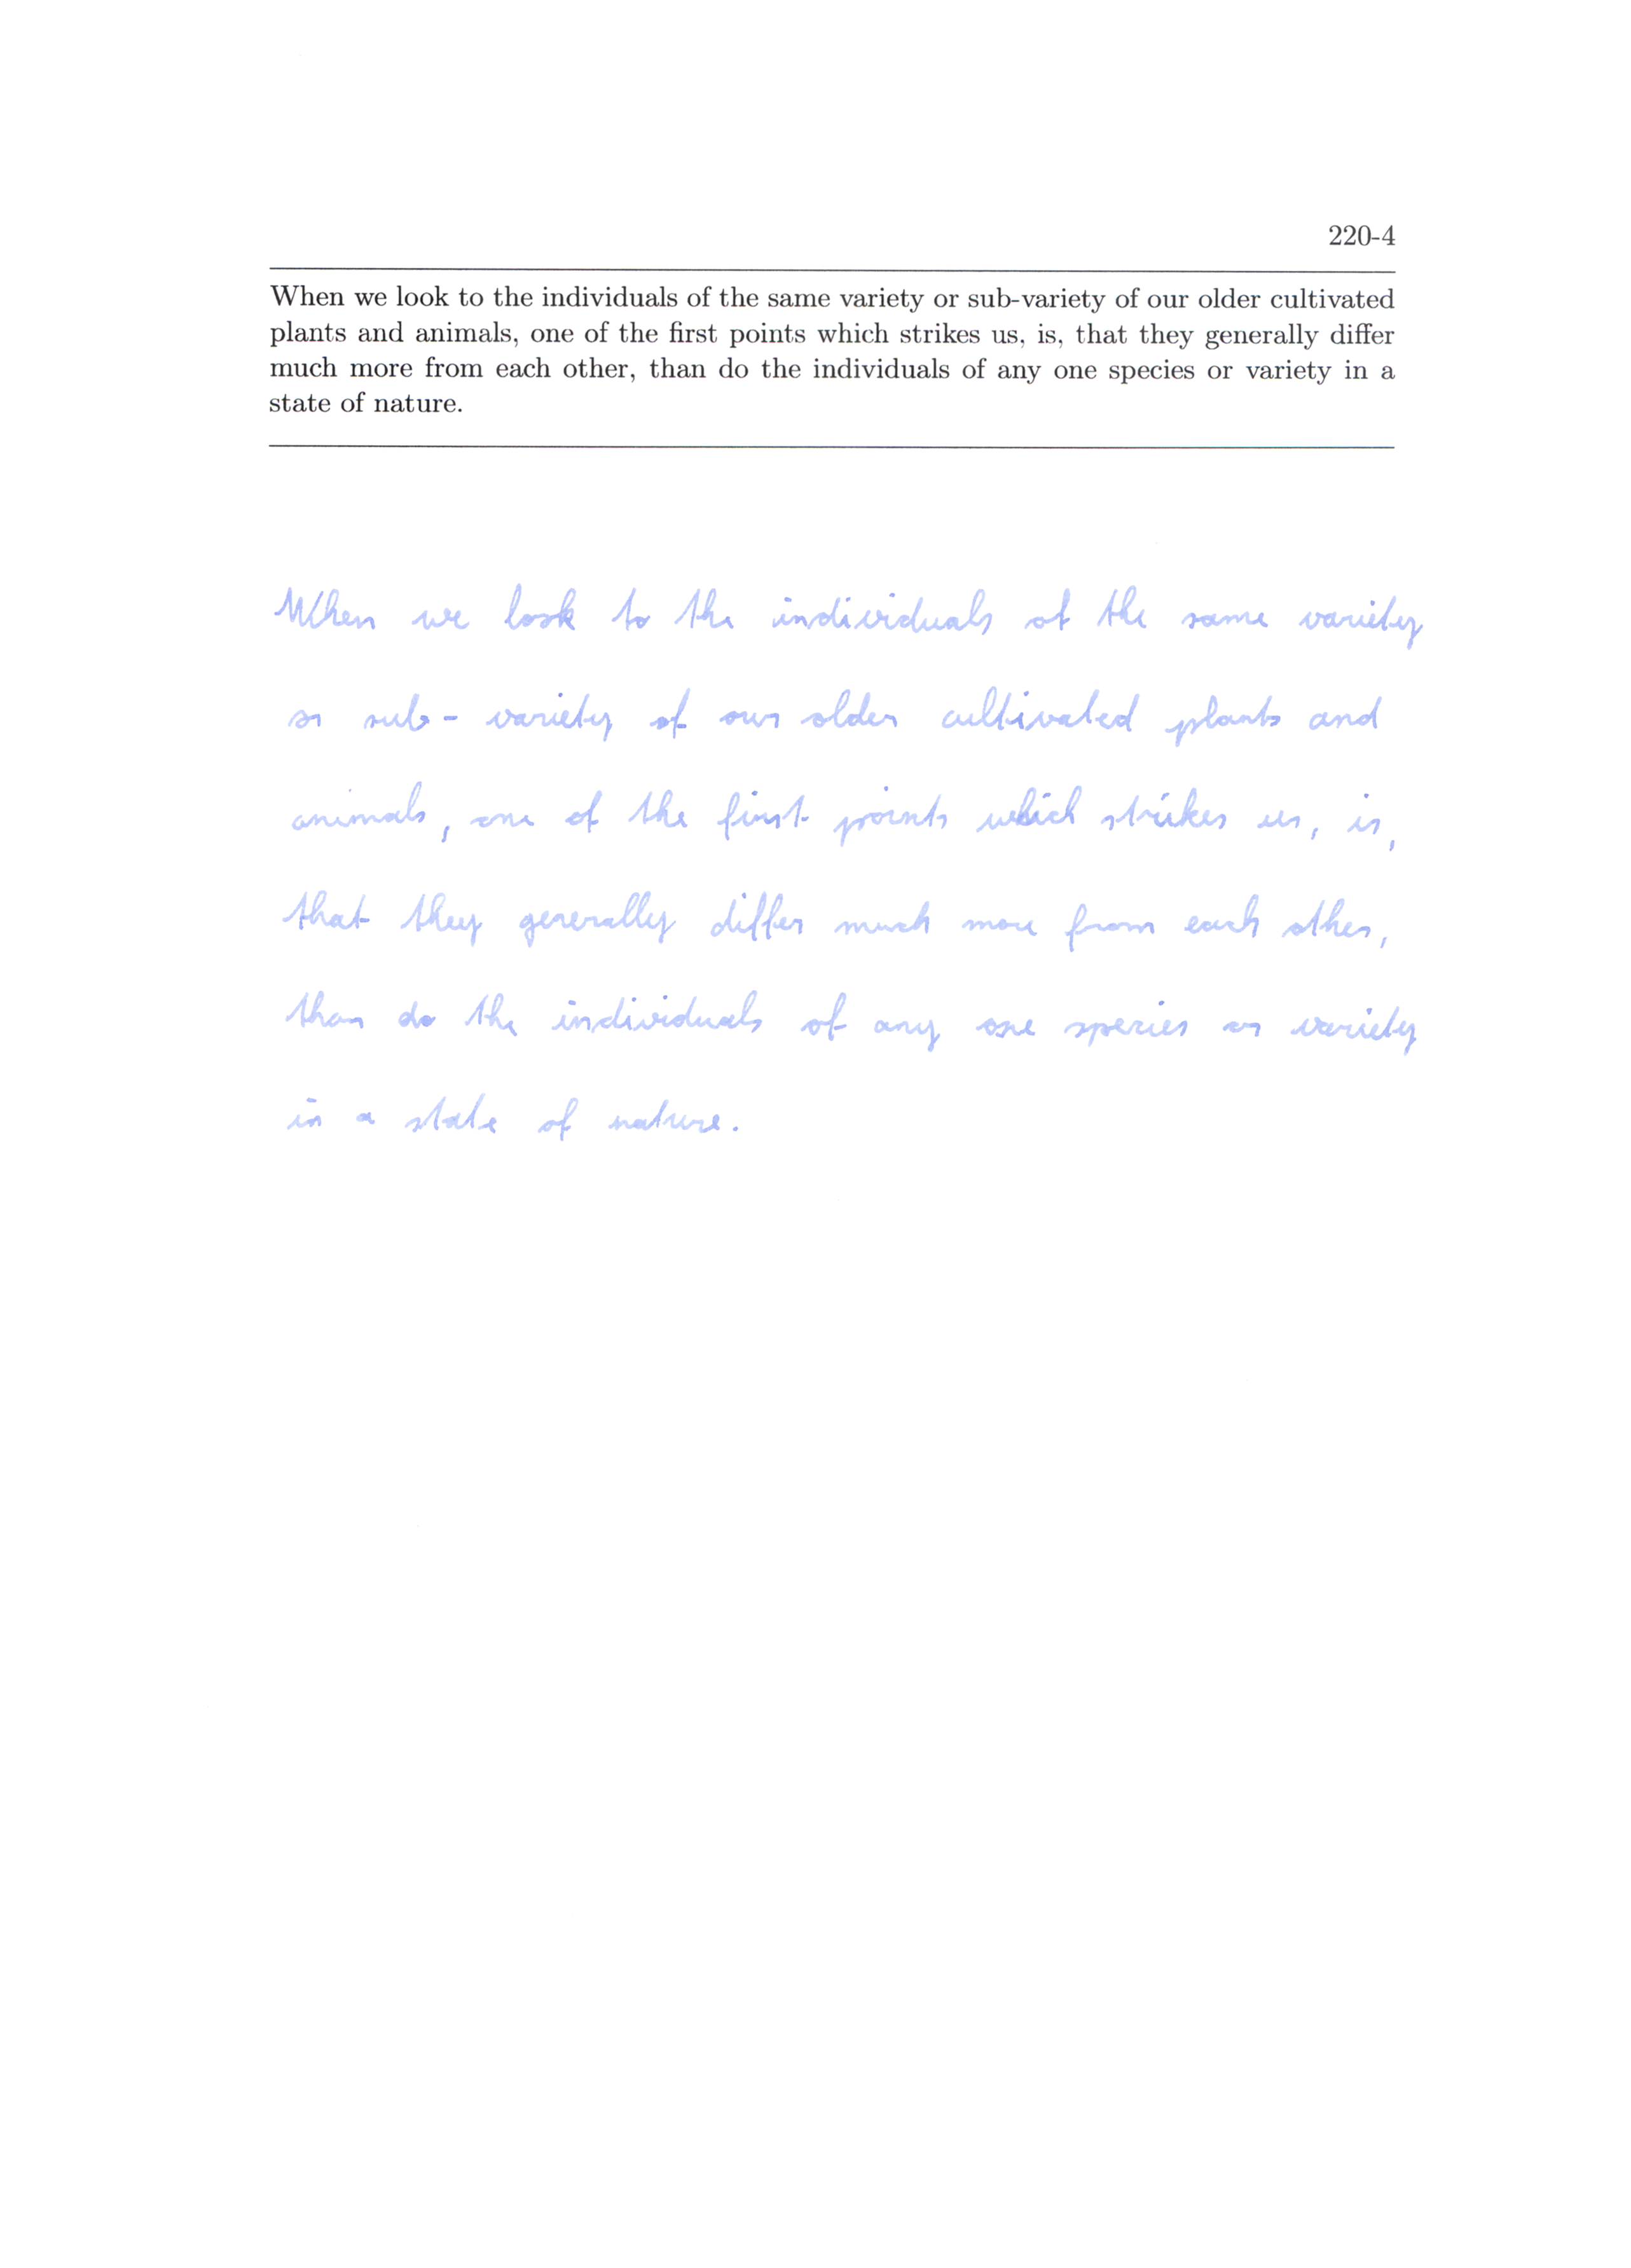 220-4
When we look to the individuals of the same variety or sub-variety of our older cultivated
plants and animals, one of the first points which strikes us, is, that they generally differ
much more from each other, than do the individuals of any one species or variety in a
state of nature.
When we look to the individuals of the same variety
or sub-variety of our older cultivated plants and
animals, one of the first points which strikes us, is,
that they generally differ much more from each other,
than do the individuals of any one species or variety
in a state of nature.